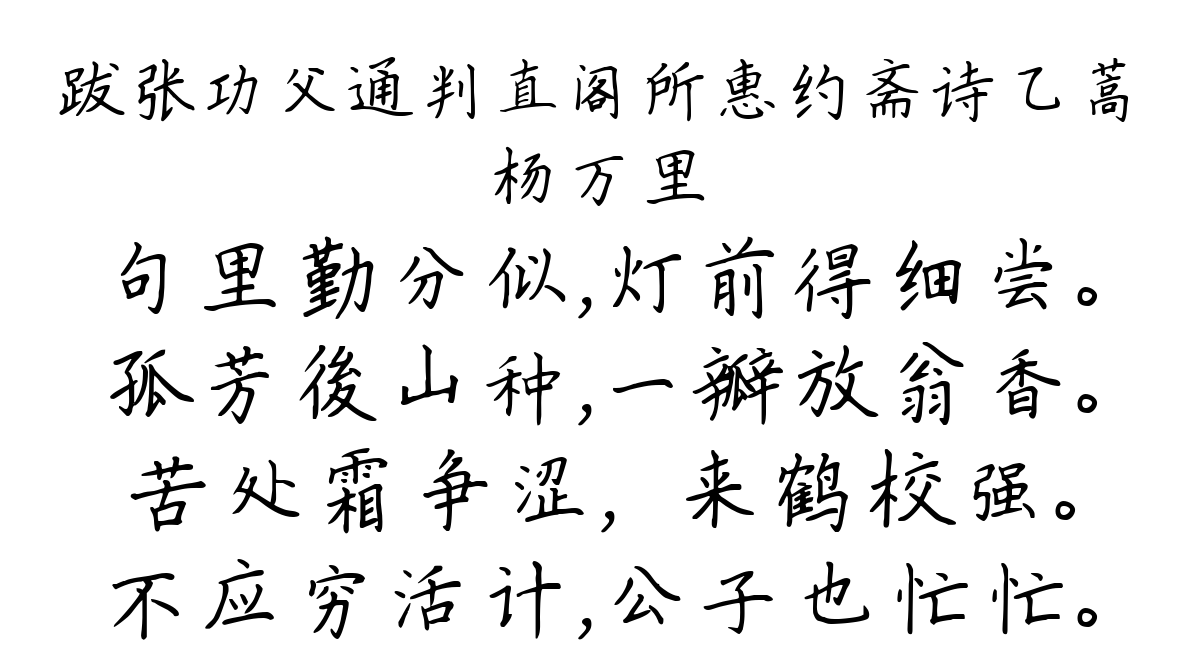 跋张功父通判直阁所惠约斋诗乙蒿
杨万里
句里勤分似,灯前得细尝。
孤芳後山种,一瓣放翁香。
苦处霜争涩,来鹤校强。
不应穷活计,公子也忙忙。